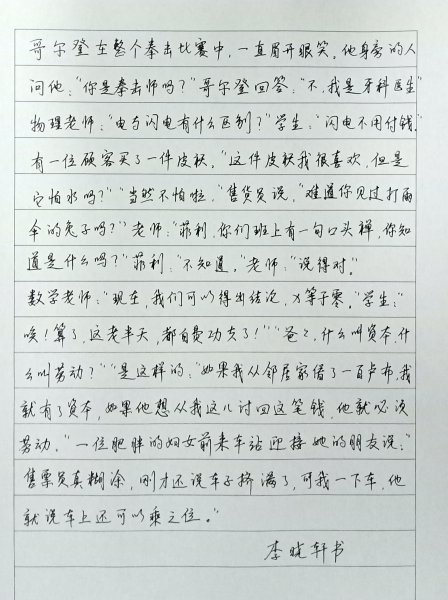 哥尔登在整个拳击比赛中，一直眉开眼笑。他身旁的人
问他：“你是拳击师吗？”哥尔登回答：“不，我是牙科医生”
物理老师：“电与闪电有什么区别？”学生：“闪电不用付钱。”
有一位顾客买了一件皮袄。“这件皮袄我很喜欢，但是
它怕水吗？”“当然不怕啦，”售货员说，“难道你见过打雨
伞的兔子吗？”老师：“菲利，你们班上有一句口头禅，你知
道是什么吗？”菲利：“不知道。”老师：“说得对。”
数学老师：“现在，我们可以得出结论，X等于零。”学生：“
唉！算了，这老半天，都白费功夫了！”“爸爸，什么叫资本，什
么叫劳动？”“是这样的：“如果我从邻居家借了一百卢布，我
就有了资本，如果他想从我这儿讨回这笔钱，他就必须
劳动。”一位肥胖的妇女前来车站迎接她的朋友说：“
售票员真糊涂，刚才还说车子挤满了，可我一下车，他
就说车上还可以乘三位。”
李晓轩书